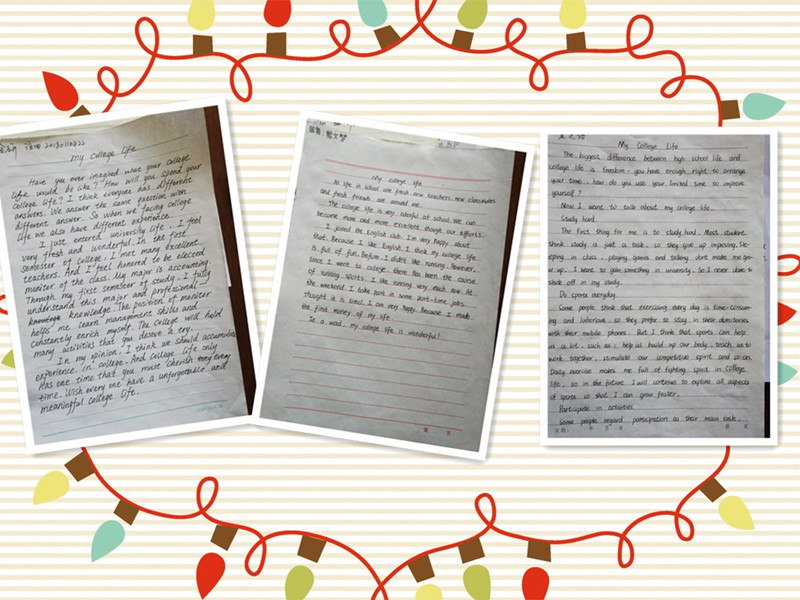 2018011022
My College Life
Have you ever imagined what your college
life would be like? How will you spend your
college life? I think everyone has different
answers. We answer the same question with
different answer. So when we facing college
life we also have different experience.
I just entered university life, I feel
very fresh and wonderful. In the first
semester of college, I met many excellent
teachers. And I feel honored to be elected
moniter of the class. My major is accounting
Through my first semester of study, I fully
understand this major and professional
knowledge. The position of moniter
helps me learn management skills and
constantly enrich myself. The college will hold
many activities that you deserve a try.
In my opinion, I think we should accumulate
experience in college. And college life only
has one time that you must cherish every
time. Wish every one have a unforgettable and
meaningful college life.
My college life
As life is school, are fresh new teachers, new classmates
and fresh friends are around me.
The college life is very colorful at school. We can
become more and more excellent though our efforts.
I joined the English club. I'm very happy about
that. Because I like English. I think my college life
is full of fun. Before, I didn't like running. However,
since I went to college, there has been the course
of running sports, I like running very much now. At
the weekend. I take part in some part-time jobs.
thought it is tired, I am very happy. Because I made
the first money of my life.
In a word, my college life is wonderful!
My College Life
The biggest difference between high school life and
college life is freedom, you have enough right to arrange
your time, how do you use your limited time to improve
yourself?
Now I want to talk about my college life.
Study hard.
The first thing for me is to study hard. Most student
think study is just a task, so they give up improving. Sle-
eping in class, playing games and talking dont make me gro-
w up. I want to gain something in university. So I never dare to
slack off in my study.
Do sports everyday.
Some people think that exercising every day is time-consum-
ing and laborious, so they prefer to stay in their dormitories
with their mobile phones. But I think that sports can help
us a lot, such as, help us build up our body, teach us to
work together, stimulate our competitive spirit and so on.
Daily exercise makes me full of fighting spirit in college
life, so in the future I will continue to explore all aspects
of sports so that I can grow faster.
Participate in activities.
Some people regard participation as their main task.